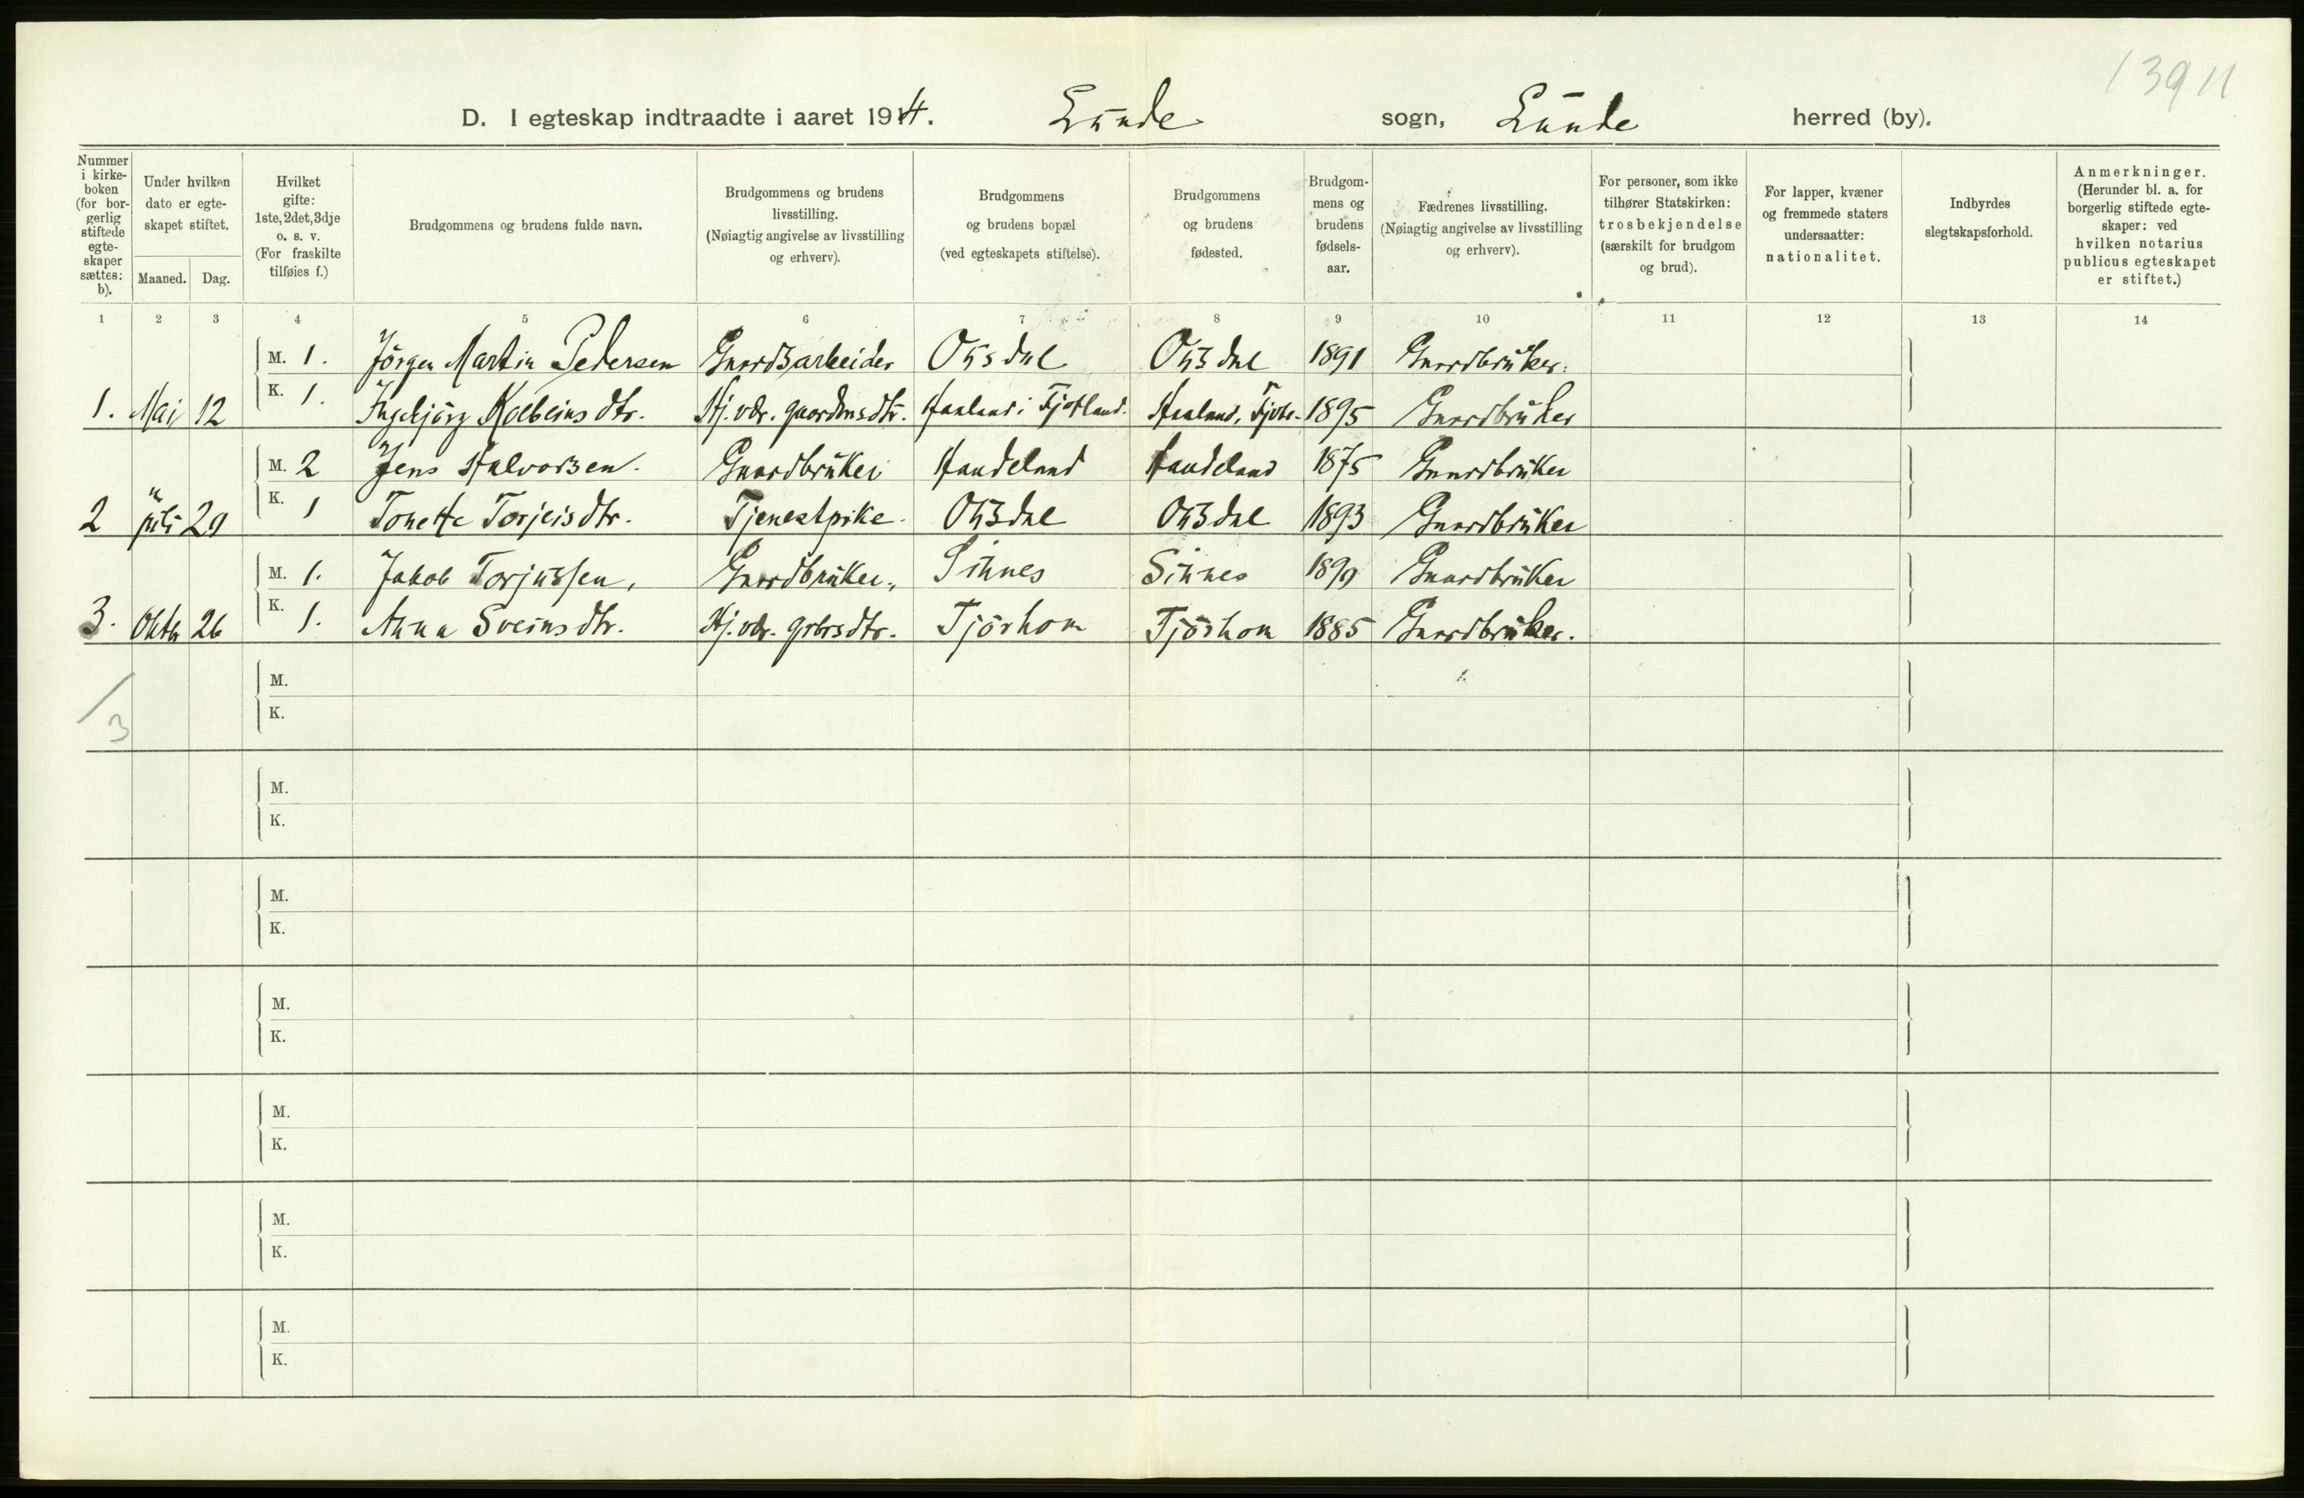 13911
D. I egteskap indtraadte i aaret 1914. Lunde sogn, Lunde herred (by).
Nummer i kirkeboken (for borgerlig stiftede egteskaper sættes: b).
Under hvilken dato er egteskapet stiftet.
Maaned. Dag.
Hvilket gifte: 1ste, 2det, 3dje o. s. v. (For fraskilte tilføies f.)
Brudgommens og brudens fulde navn.
Brudgommens og brudens livsstilling. (Nøiagtig angivelse av livsstilling og erhverv).
Brudgommens og brudens bopæl (ved egteskapets stiftelse).
Brudgommens og brudens fødested.
Brudgommens og brudens fødselsaar.
Fædrenes livsstilling. (Nøiagtig angivelse av livsstilling og erhverv).
For personer, som ikke tilhører Statskirken: trosbekjendelse (særskilt for brudgom og brud).
For lapper, kvæner og fremmede staters undersaatter: nationalitet.
Indbyrdes slegtskapsforhold.
Anmerkninger. (Herunder bl. a. for borgerlig stiftede egteskaper: ved hvilken notarius publicus egteskapet er stiftet.)
1 2 3 4 5 6 7 8 9 10 11 12 13 14
M. 1. Jörgen Martin Pedersen Gaardsarbeider Oksdal Oksdal 1891 Gaardbruker.
1. Mai 12 K. 1. Ingebjörg Kolbeinsdtr. Hj. vær. gaardmsdtr. Haaland i Fjotland. Haaland, Fjotl. 1895 Gaardbruker
M. 2 Jens Halvorsen. Gaardbruker Haudeland Haudeland 1875 Gaardbruker
2 juli 29 K. 1 Tonette Torjeisdtr. Tjenestpike. Oksdal Oksdal 1893 Gaardbruker
M. 1. Jakob Torjussen, Gaardbruker, Sinnes Sinnes 1890 Gaardbruker
3. Oktb 26 K. 1. Anna Sveinsdtr. Hj. vær. grbrsdtr. Tjörhom Tjörhom 1885 Gaardbruker.
M.
/3 K.
M.
K.
M.
K.
M.
K.
M.
K.
M.
K.
M.
K.